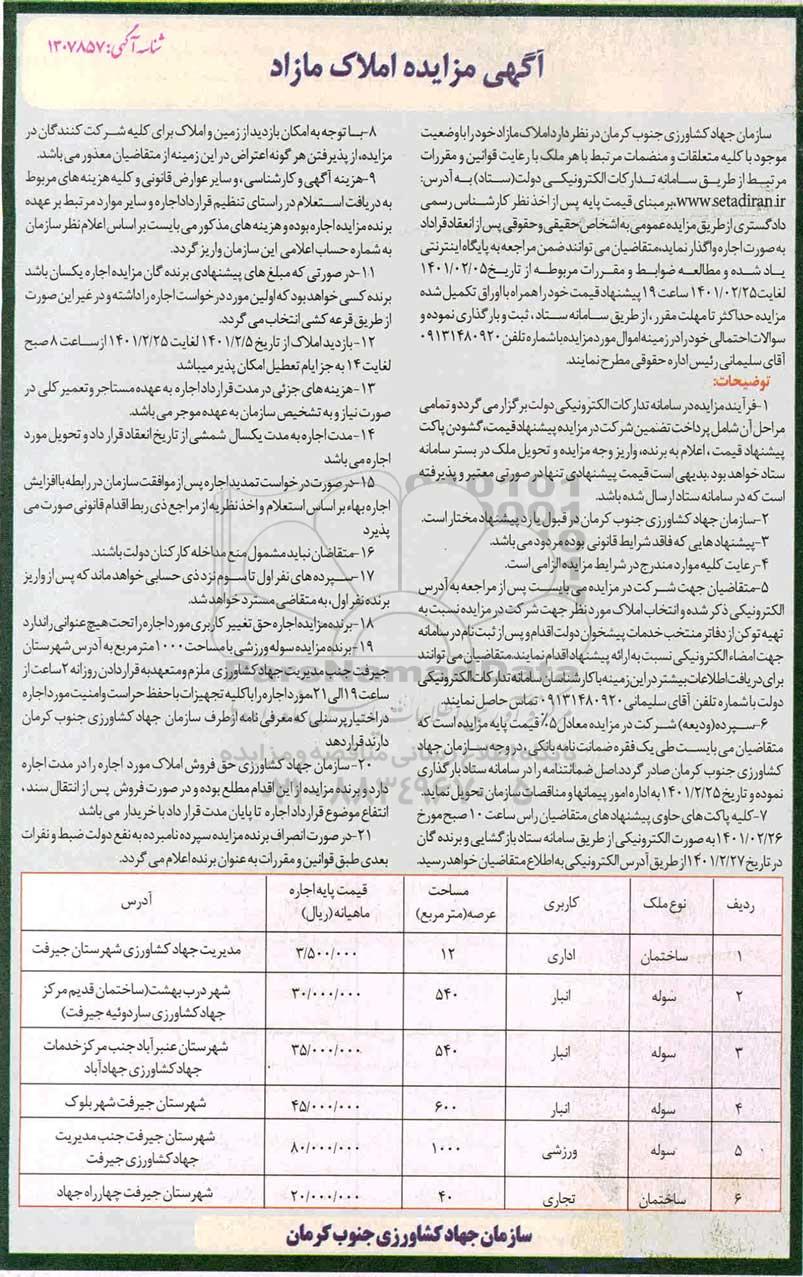 شناسه آگهی: ۱۳۰۷۸۵۷
آگهی مزایده املاک مازاد
سازمان جهاد کشاورزی جنوب کرمان در نظر دارد املاک مازاد خود را با وضعیت
موجود با کلیه متعلقات و منضمات مرتبط با هر ملک با رعایت قوانین و مقررات
مرتبط از طریق سامانه تدارکات الکترونیکی دولت(ستاد) به آدرس:
www.setadiran.ir، بر مبنای قیمت پایه پس از اخذ نظر کارشناس رسمی
دادگستری از طریق مزایده عمومی به اشخاص حقیقی و حقوقی پس از انعقاد قراداد
به صورت اجاره واگذار نماید، متقاضیان می توانند ضمن مراجعه به پایگاه اینترنتی
یاد شده و مطالعه ضوابط و مقررات مربوطه از تاریخ ۱۴۰۱/۰۲/۰۵
لغایت ۱۴۰۱/۰۲/۲۵ ساعت ۱۹ پیشنهاد قیمت خود را همراه با اوراق تکمیل شده
مزایده حداکثر تا مهلت مقرر، از طریق سامانه ستاد، ثبت و بارگذاری نموده و
سوالات احتمالی خود را در زمینه اموال مورد مزایده با شماره تلفن ۰۹۱۳۱۴۸۰۹۲۰
آقای سلیمانی رئیس اداره حقوقی مطرح نمایند.
توضیحات:
۱-فرآیند مزایده در سامانه تدارکات الکترونیکی دولت برگزار می گردد و تمامی
مراحل آن شامل پرداخت تضمین شرکت در مزایده پیشنهاد قیمت، گشودن پاکت
پیشنهاد قیمت، اعلام به برنده، واریز وجه مزایده و تحویل ملک در بستر سامانه
ستاد خواهد بود. بدیهی است قیمت پیشنهادی تنها در صورتی معتبر و پذیرفته
است که در سامانه ستاد ارسال شده باشد.
۲-سازمان جهاد کشاورزی جنوب کرمان در قبول یا رد پیشنهاد مختار است.
۳-پیشنهادهایی که فاقد شرایط قانونی بوده مردود می باشد.
۴-رعایت کلیه موارد مندرج در شرایط مزایده الزامی است.
۵-متقاضیان جهت شرکت در مزایده می بایست پس از مراجعه به آدرس
الکترونیکی ذکر شده و انتخاب املاک مورد نظر جهت شرکت در مزایده نسبت به
تهیه توکن از دفاتر منتخب خدمات پیشخوان دولت اقدام و پس از ثبت نام در سامانه
جهت امضاء الکترونیکی نسبت به ارائه پیشنهاد اقدام نمایند. متقاضیان می توانند
برای دریافت اطلاعات بیشتر در این زمینه با کارشناسان سامانه تدارکات الکترونیکی
دولت با شماره تلفن آقای سلیمانی ۰۹۱۳۱۴۸۰۹۲۰ تماس حاصل نمایند.
۶-سپرده(ودیعه) شرکت در مزایده معادل ۵٪ قیمت پایه مزایده است که
متقاضیان می بایست طی یک فقره ضمانت نامه بانکی، در وجه سازمان جهاد
کشاورزی جنوب کرمان صادر گردد اصل ضمانتنامه را در سامانه ستاد بارگذاری
نموده و تاریخ ۱۴۰۱/۲/۲۵ به اداره امور پیمانها و مناقصات سازمان تحویل نماید.
۷-کلیه پاکت های حاوی پیشنهادهای متقاضیان راس ساعت ۱۰ صبح مورخ
۱۴۰۱/۰۲/۲۶ به صورت الکترونیکی از طریق سامانه ستاد بازگشایی و برنده گان
در تاریخ ۱۴۰۱/۲/۲۷ از طریق آدرس الکترونیکی به اطلاع متقاضیان خواهد رسید.
۸-با توجه به امکان بازدید از زمین و املاک برای کلیه شرکت کنندگان در
مزایده، از پذیرفتن هر گونه اعتراض در این زمینه از متقاضیان معذور می باشد.
۹-هزینه آگهی و کارشناسی، و سایر عوارض قانونی و کلیه هزینه های مربوط
به دریافت استعلام در راستای تنظیم قرارداد اجاره و سایر موارد مرتبط بر عهده
برنده مزایده اجاره بوده و هزینه های مذکور می بایست بر اساس اعلام نظر سازمان
به شماره حساب اعلامی این سازمان واریز گردد.
۱۱-در صورتی که مبلغ های پیشنهادی برنده گان مزایده اجاره یکسان باشد
برنده کسی خواهد بود که اولین مورد درخواست اجاره را داشته و در غیر این صورت
از طریق قرعه کشی انتخاب می گردد.
۱۲-بازدید املاک از تاریخ ۱۴۰۱/۲/۵ لغایت ۱۴۰۱/۲/۲۵ از ساعت ۸ صبح
لغایت ۱۴ به جز ایام تعطیل امکان پذیر میباشد
۱۳-هزینه های جزئی در مدت قرارداد اجاره به عهده مستاجر و تعمیر کلی در
صورت نیاز و به تشخیص سازمان به عهده موجر می باشد.
۱۴-مدت اجاره به مدت یکسال شمسی از تاریخ انعقاد قرارداد و تحویل مورد
اجاره می باشد
۱۵-در صورت درخواست تمدید اجاره پس از موافقت سازمان در رابطه با افزایش
اجاره بهاء بر اساس استعلام و اخذ نظریه از مراجع ذی ربط اقدام قانونی صورت می
پذیرد
۱۶-متقاضان نباید مشمول منع مداخله کارکنان دولت باشند.
۱۷-سپرده های نفر اول تا سوم نزد ذی حسابی خواهد ماند که پس از واریز
برنده نفر اول، به متقاضی مسترد خواهد شد.
۱۸-برنده مزایده اجاره حق تغییر کاربری مورد اجاره را تحت هیچ عنوانی را ندارد
۱۹-برنده مزایده سوله ورزشی با مساحت ۱۰۰۰ متر مربع به آدرس شهرستان
جیرفت جنب مدیریت جهاد کشاورزی ملزم و متعهد به قرار دادن روزانه ۲ ساعت از
ساعت ۱۹ الی ۲۱، مورد اجاره را با کلیه تجهیزات با حفظ حراست و امنیت مورد اجاره
در اختیار پرسنلی که معرفی نامه از طرف سازمان جهاد کشاورزی جنوب کرمان
دارند قرار دهد
۲۰-سازمان جهاد کشاورزی حق فروش املاک مورد اجاره را در مدت اجاره
دارد و برنده مزایده از این اقدام مطلع بوده و در صورت فروش پس از انتقال سند،
انتفاع موضوع قرارداد اجاره تا پایان مدت قرارداد با خریدار می باشد
۲۱-در صورت انصراف برنده مزایده سپرده نامبرده به نفع دولت ضبط و نفرات
بعدی طبق قوانین و مقررات به عنوان برنده اعلام می گردد.
ردیف نوع ملک کاربری مساحت عرصه(متر مربع) قیمت پایه اجاره ماهیانه (ریال) آدرس
۱ ساختمان اداری ۱۲ ۳/۵۰۰/۰۰۰ مدیریت جهاد کشاورزی شهرستان جیرفت
۲ سوله انبار ۵۴۰ ۳۰/۰۰۰/۰۰۰ شهر درب بهشت(ساختمان قدیم مرکز جهاد کشاورزی ساردوئیه جیرفت)
۳ سوله انبار ۵۴۰ ۳۵/۰۰۰/۰۰۰ شهرستان عنبرآباد جنب مرکز خدمات جهاد کشاورزی جهادآباد
۴ سوله انبار ۶۰۰ ۴۵/۰۰۰/۰۰۰ شهرستان جیرفت شهر بلوک
۵ سوله ورزشی ۱۰۰۰ ۸۰/۰۰۰/۰۰۰ شهرستان جیرفت جنب مدیریت جهاد کشاورزی جیرفت
۶ ساختمان تجاری ۴۰ ۲۰/۰۰۰/۰۰۰ شهرستان جیرفت چهارراه جهاد
سازمان جهاد کشاورزی جنوب کرمان